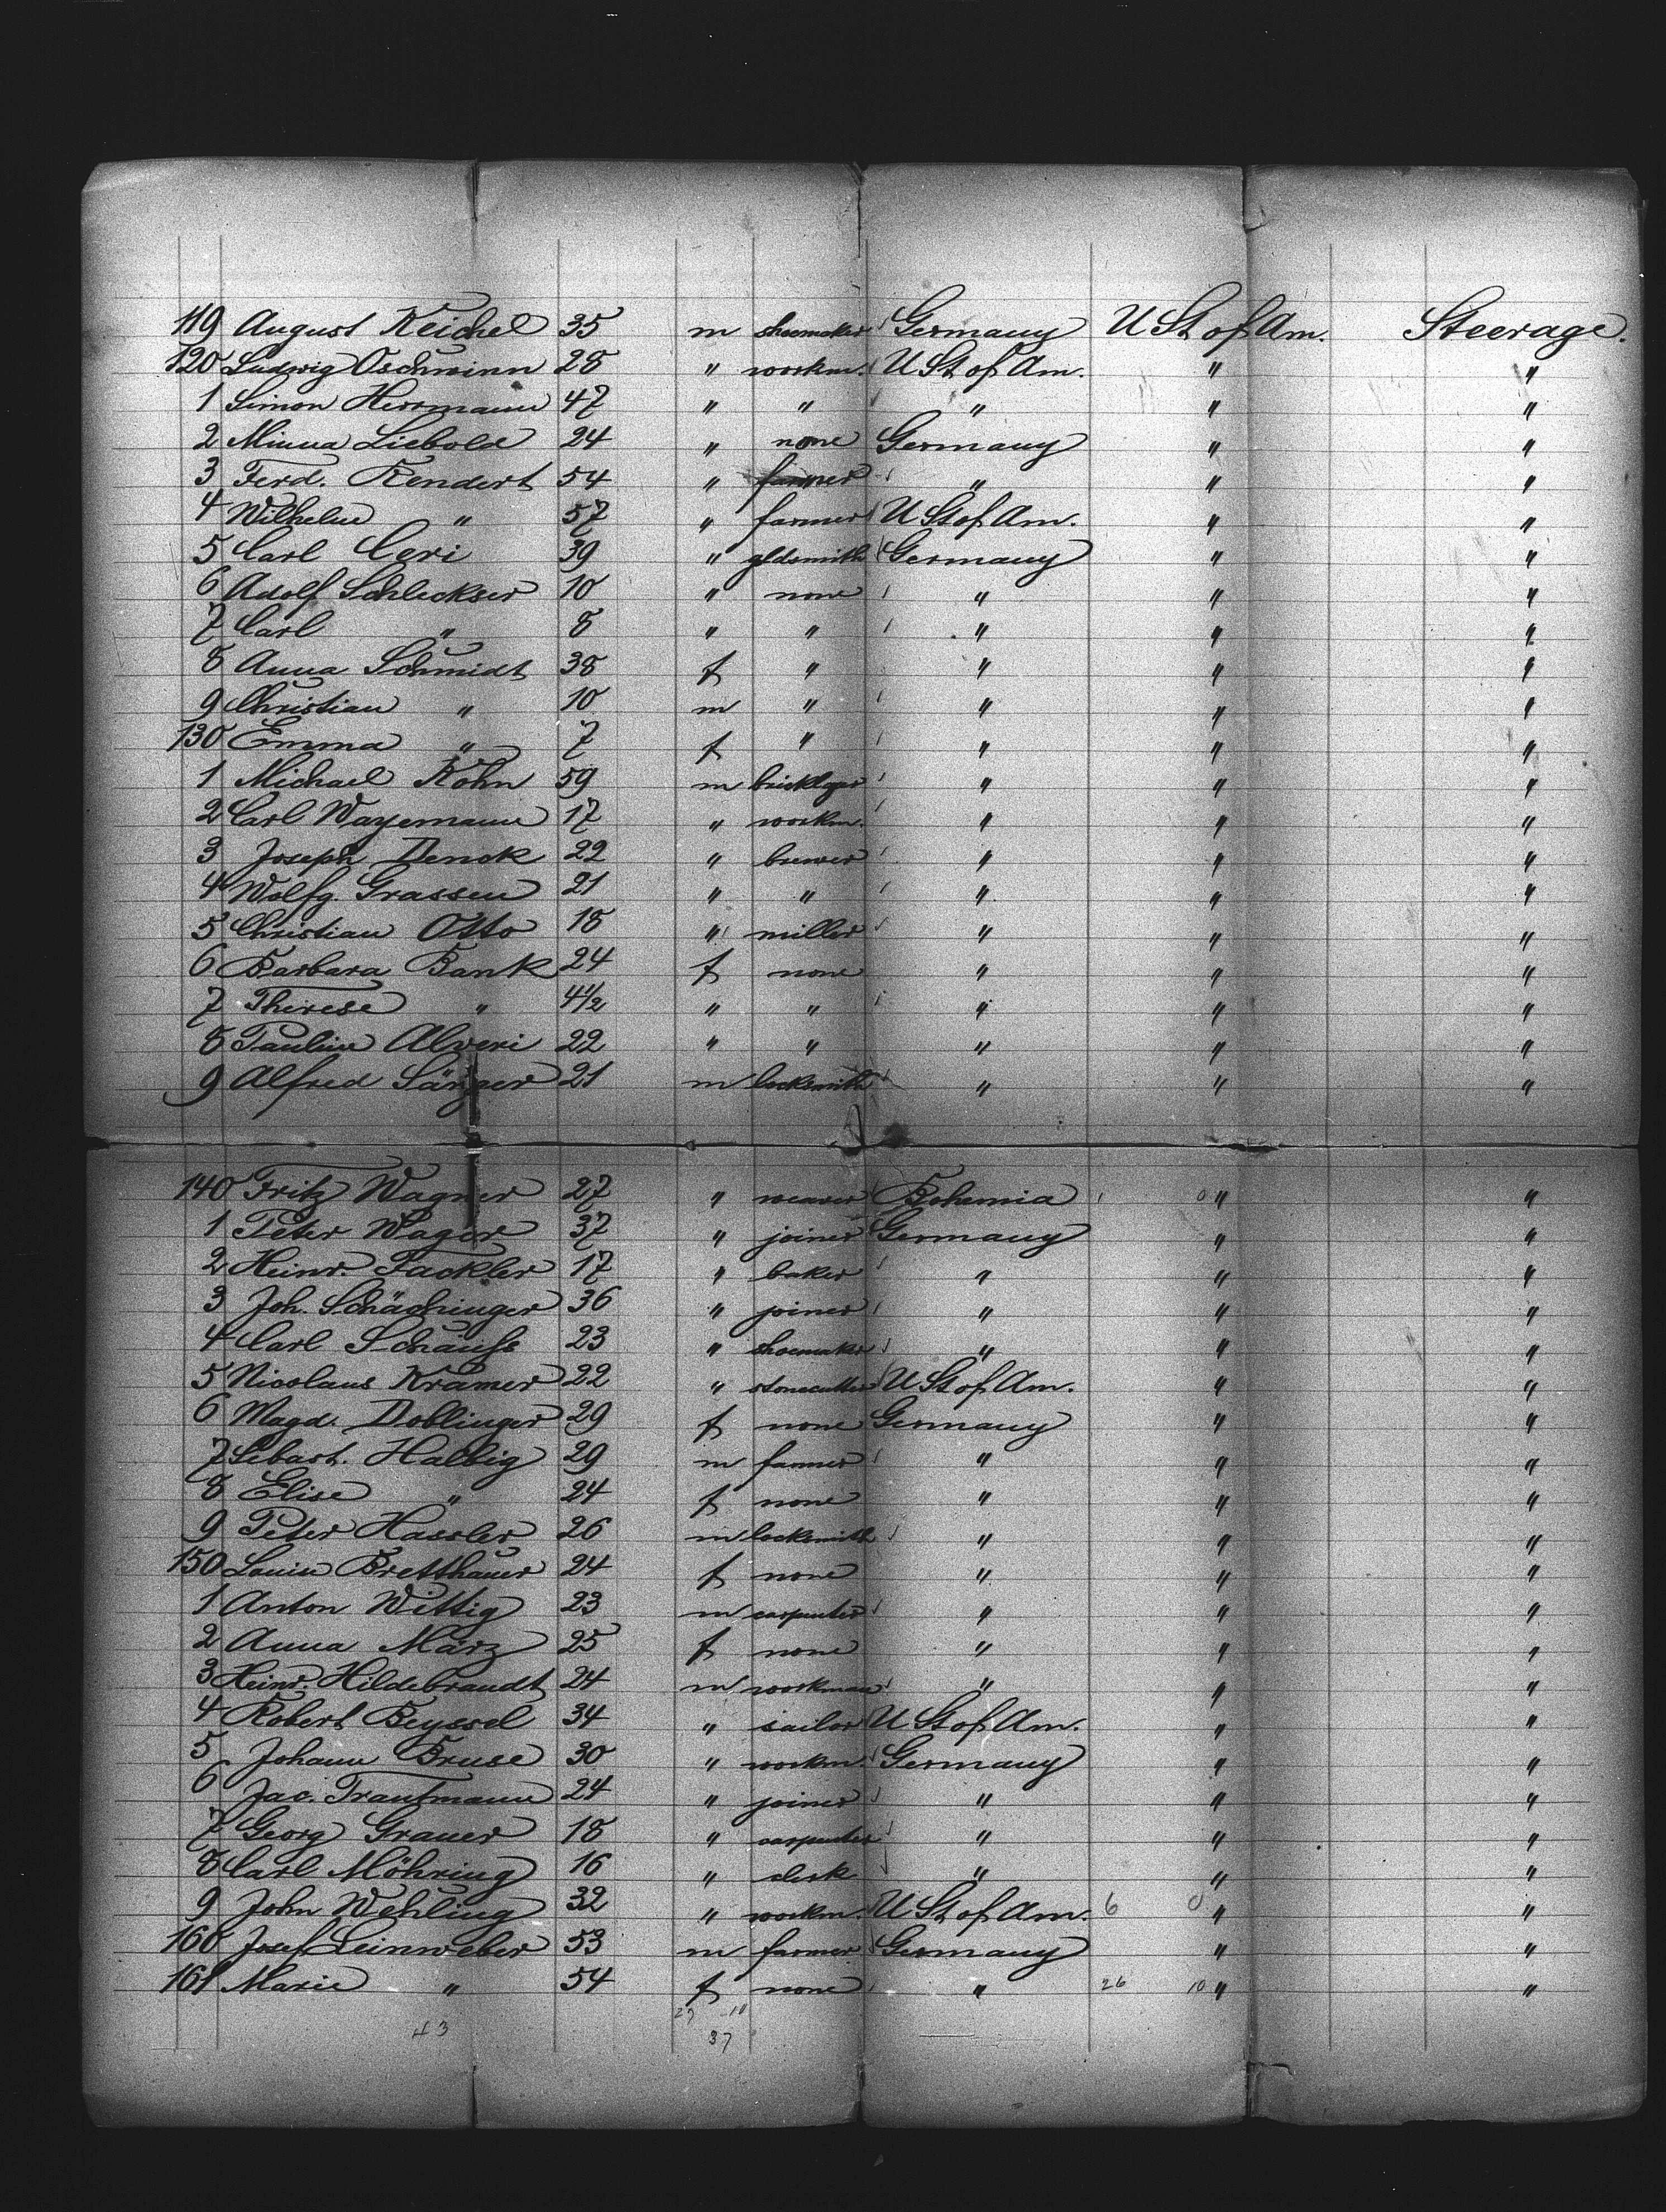 119 August Reichel 35 m shoemaker Germany U St of Am. Steerage.
120 Ludwig Oschwinn 28 " workm. U St of Am. " "
1 Simon Herrmann 47 " " " " "
2 Minna Liebold 24 " none Germany " "
3 Ferd. Rendert 54 " farmer " " "
4 Wilhelm " 57 " farmer U St of Am. " "
5 Carl Ceri 39 " gldsmith Germany " "
6 Adolf Schleckser 10 " none " " "
7 Carl " 8 " " " " "
8 Anna Schmidt 38 f " " " "
9 Christian " 10 m " " " "
130 Emma " 7 f " " " "
1 Michael Röhn 59 m bricklyer " " "
2 Carl Wayemann 17 " workm. " " "
3 Joseph Denck 22 " brewer " " "
4 Wolfg. Grassen 21 " " " " "
5 Christian Otto 18 " miller " " "
6 Barbara Bank 24 f none " " "
7 Therese " 4 1/2 " " " " "
8 Pauline Alveri 22 " " " " "
9 Alfred Sänger 21 m locksmith " " "
140 Fritz Wagner 27 " weaver Bohemia 0 " "
1 Peter Wager 37 " joiner Germany " "
2 Heinr. Fackler 17 " baker " " "
3 Joh. Schächinger 36 " joiner " " "
4 Carl Schäufs 23 " shoemaker " " "
5 Nicolaus Krämer 22 " stonecutter U St of Am. " "
6 Magd. Doblinger 29 f none Germany " "
7 Sebast. Halbig 29 m farmer " " "
8 Elise " 24 f none " " "
9 Peter Hassler 26 m locksmith " " "
150 Louise Bretthauer 24 f none " " "
1 Anton Wittig 23 m carpenter " " "
2 Anna März 25 f none " " "
3 Heinr. Hildebrandt 24 m workman " " "
4 Robert Beyssel 34 " sailor U St of Am. " "
5 Johann Bruse 30 " workm. Germany " "
6 Jac. Trautmann 24 " joiner " " "
7 Georg Grauer 18 " carpenter " " "
8 Carl Möhring 16 " clerk " " "
9 John Wehling 32 " workm. U St of Am. 6 0 " "
160 Josef Leinweber 53 m farmer Germany " "
161 Marie " 54 f none " 26 10 " "
27 10
43 37